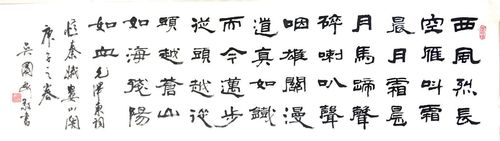 西風烈長
空雁叫霜
晨月霜晨
月馬蹄聲
碎喇叭聲
咽雄關漫
道真如鐵
而今邁步
從頭越從
頭越蒼山
如海殘陽
如血 毛澤東詞
憶秦娥婁山関
庚子之春
吳國書